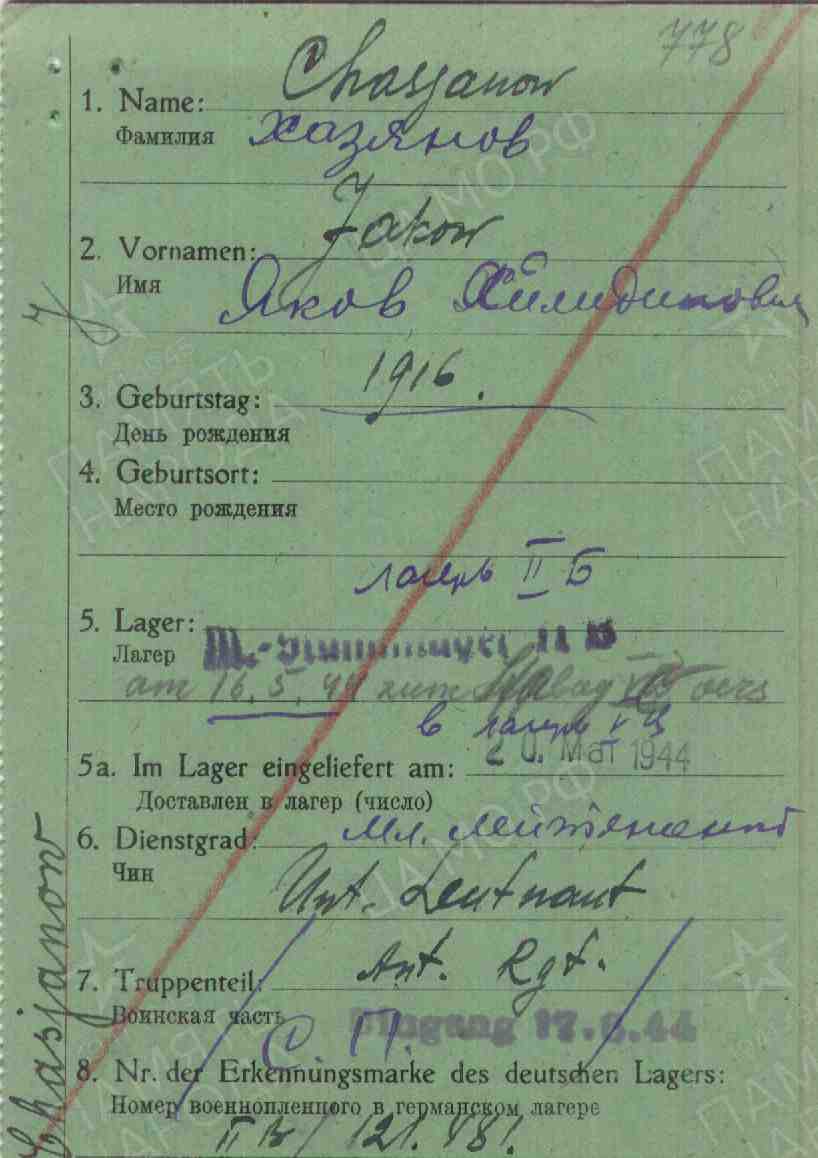 778
Chasjanow
1. Name:
Фамилия Хазянов
Jakow
2. Vornamen:
Имя Яков
1916.
3. Geburtstag:
День рождения
4. Geburtsort:
Место рождения
лагерь II Б
5. Lager:
Лагер M.-Stammlager II B
am 16.5.44 zum Stalag V vers
в лагерь V Ц
5a. Im Lager eingeliefert am: 20. Mai 1944
Доставлен в лагер (число)
6. Dienstgrad: Мл. лейтенант
Чин
Unt. Leutnant
7. Truppenteil: Rgt.
Воинская часть Eingang 17.6.44
С П.
8. Nr. der Erkennungsmarke des deutschen Lagers:
Номер военнопленного в германском лагере
II B / 121.481.
Chasjanow
ПАМЯТЬ НАРОДА
ЦАМО РФ